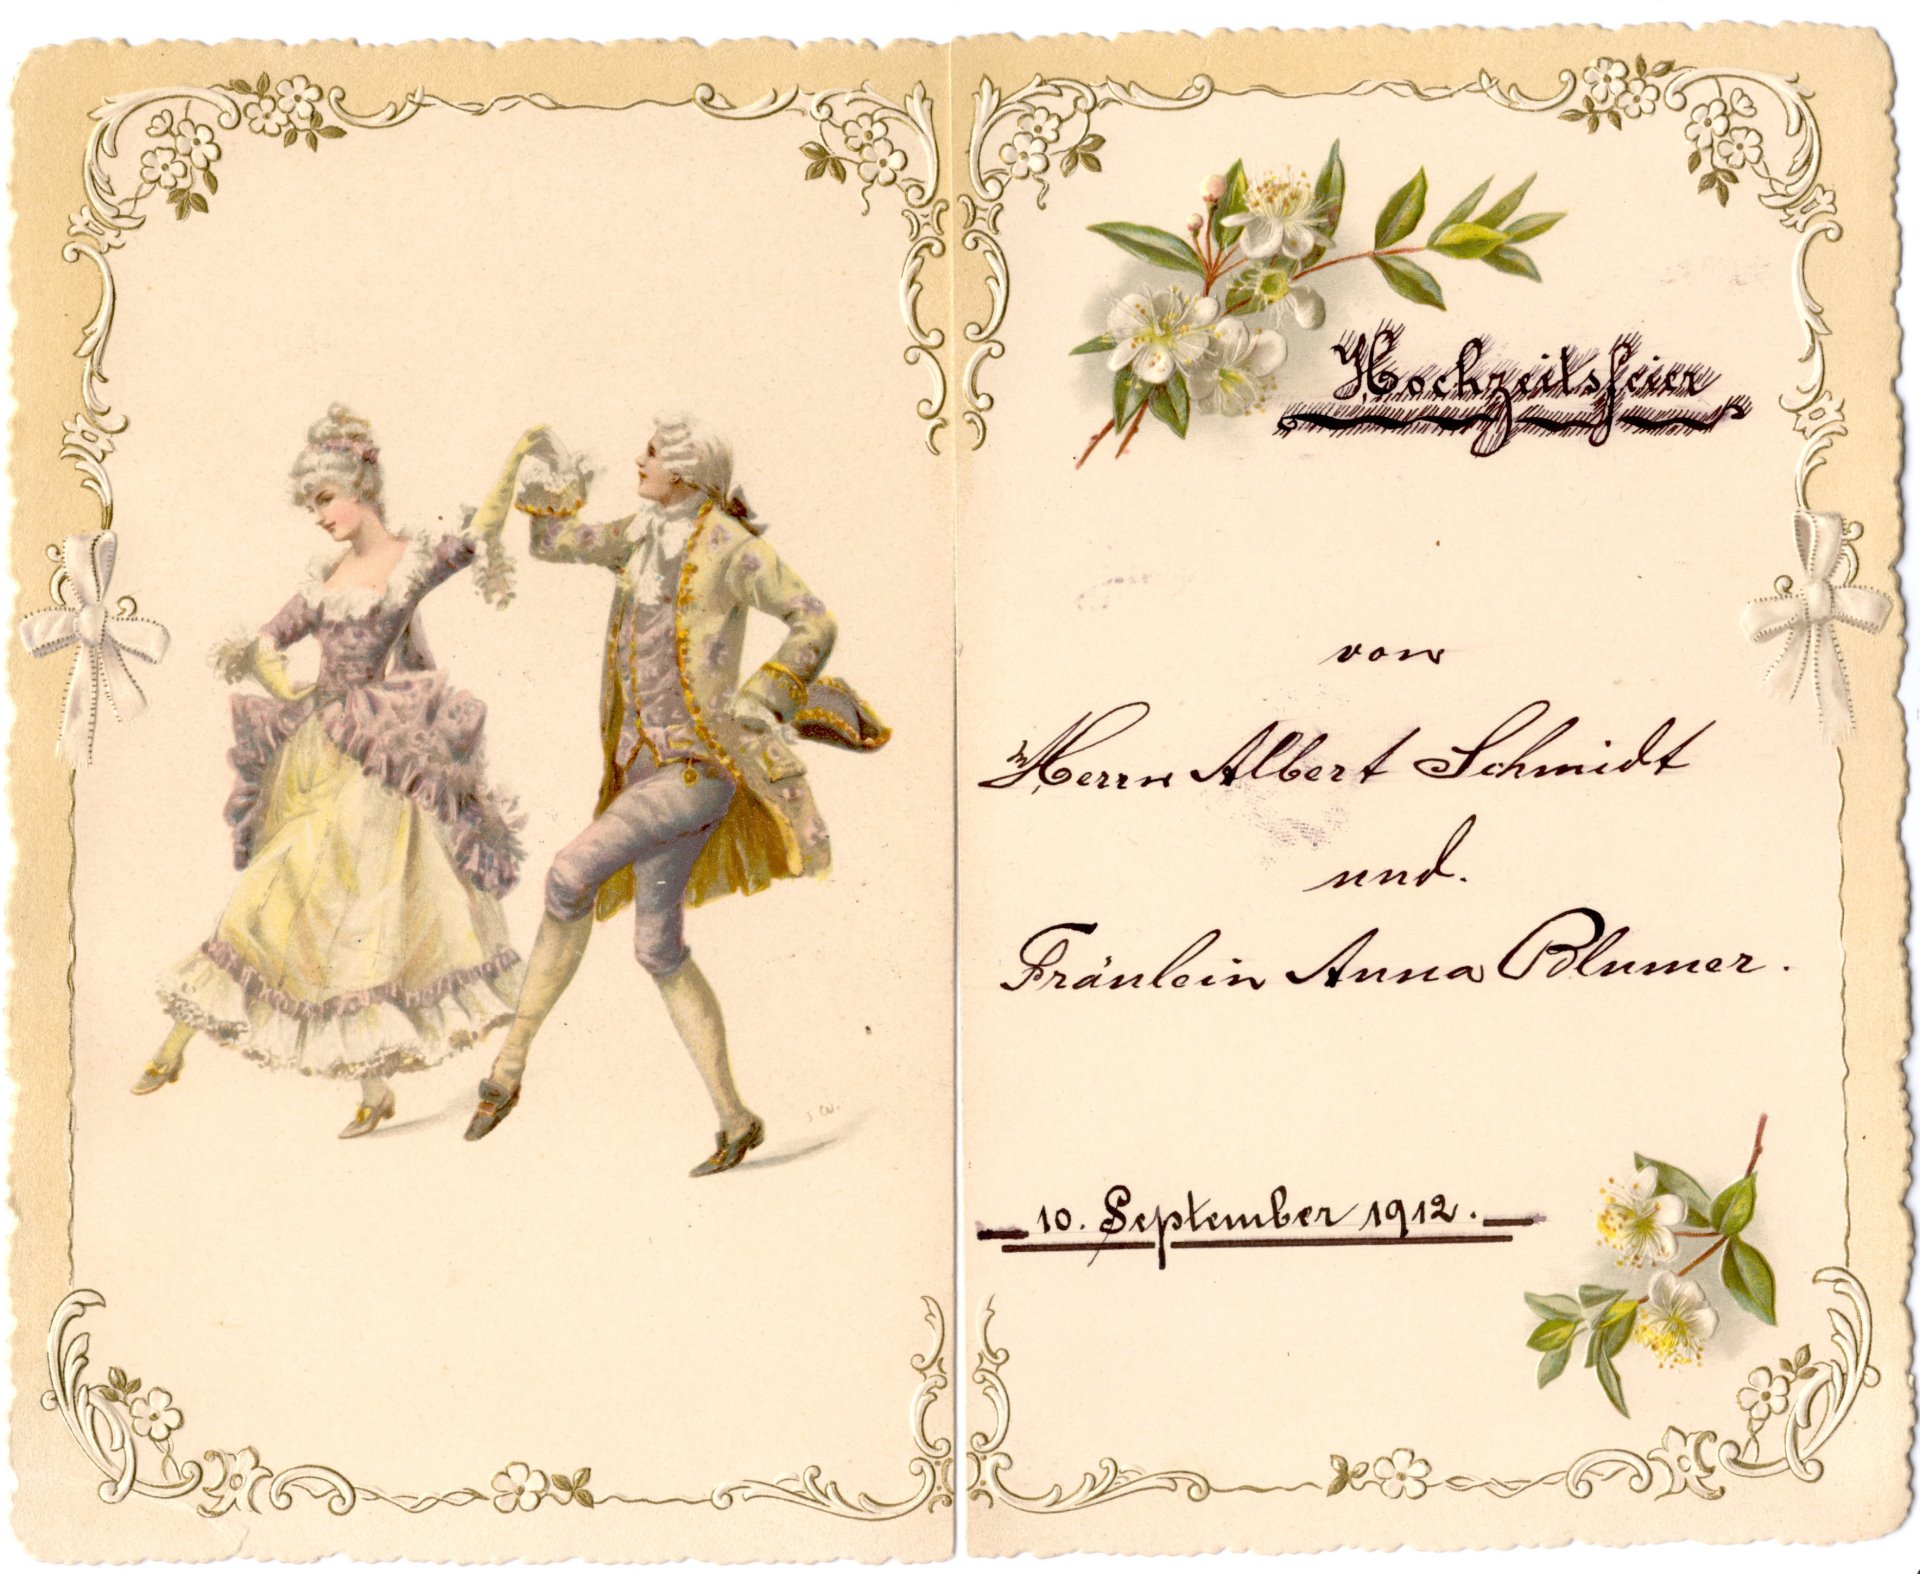 J W.
Hochzeitsfeier
von
Herrn Albert Schmidt
und.
Fräulein Anna Blumer.
10. September 1912.